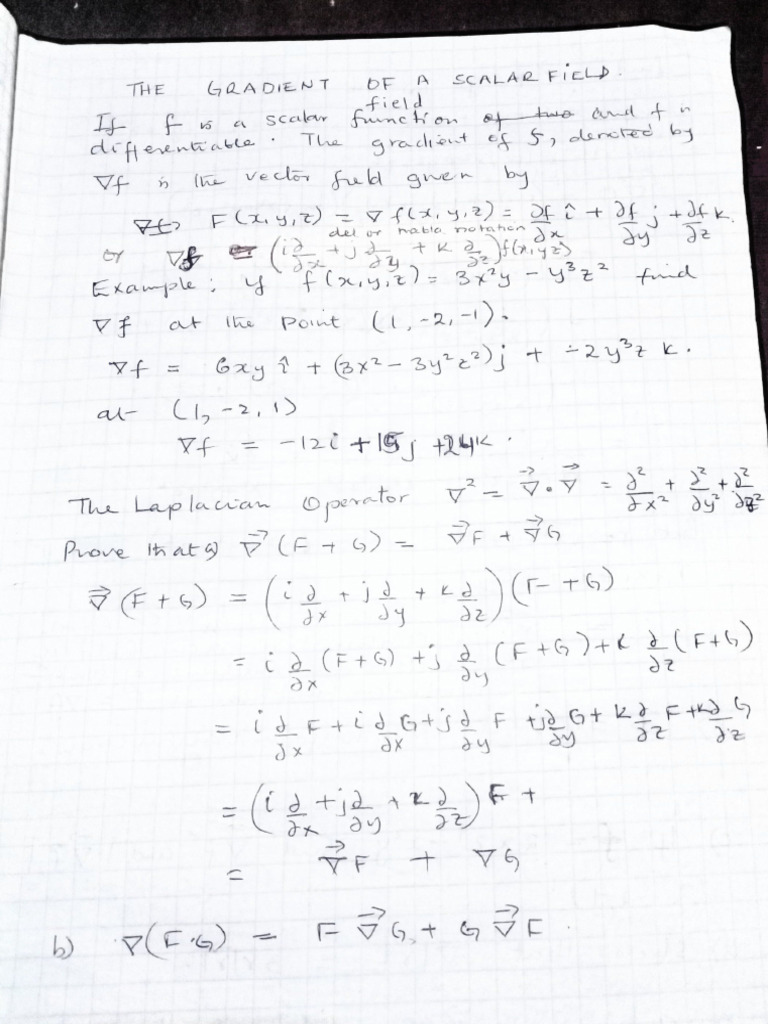 THE GRADIENT OF A SCALAR FIELD.
field
If f is a scalar function of two and f is
differentiable. The gradient of f, denoted by
∇f is the vector field given by
∇f F(x,y,z) = ∇f(x,y,z) = ∂f/∂x î + ∂f/∂y j + ∂f/∂z k.
del or nabla notation
or ∇f = (i ∂/∂x + j ∂/∂y + k ∂/∂z) f(x,y,z)
Example; if f(x,y,z) = 3x²y - y³z² find
∇f at the point (1, -2, -1).
∇f = 6xy î + (3x² - 3y²z²)j + -2y³z k.
at (1, -2, 1)
∇f = -12i + 15j + 24k.
The Laplacian Operator ∇² = ∇⃗ . ∇⃗ = ∂²/∂x² + ∂²/∂y² + ∂²/∂z²
Prove that a) ∇⃗ (F + G) = ∇⃗F + ∇⃗G
∇⃗ (F + G) = (i ∂/∂x + j ∂/∂y + k ∂/∂z)(F + G)
= i ∂/∂x (F+G) + j ∂/∂y (F+G) + k ∂/∂z (F+G)
= i ∂/∂x F + i ∂/∂x G + j ∂/∂y F + j ∂/∂y G + k ∂/∂z F + k ∂/∂z G
= (i ∂/∂x + j ∂/∂y + k ∂/∂z) F +
= ∇⃗F + ∇G
b) ∇(F.G) = F ∇⃗G + G ∇⃗F.